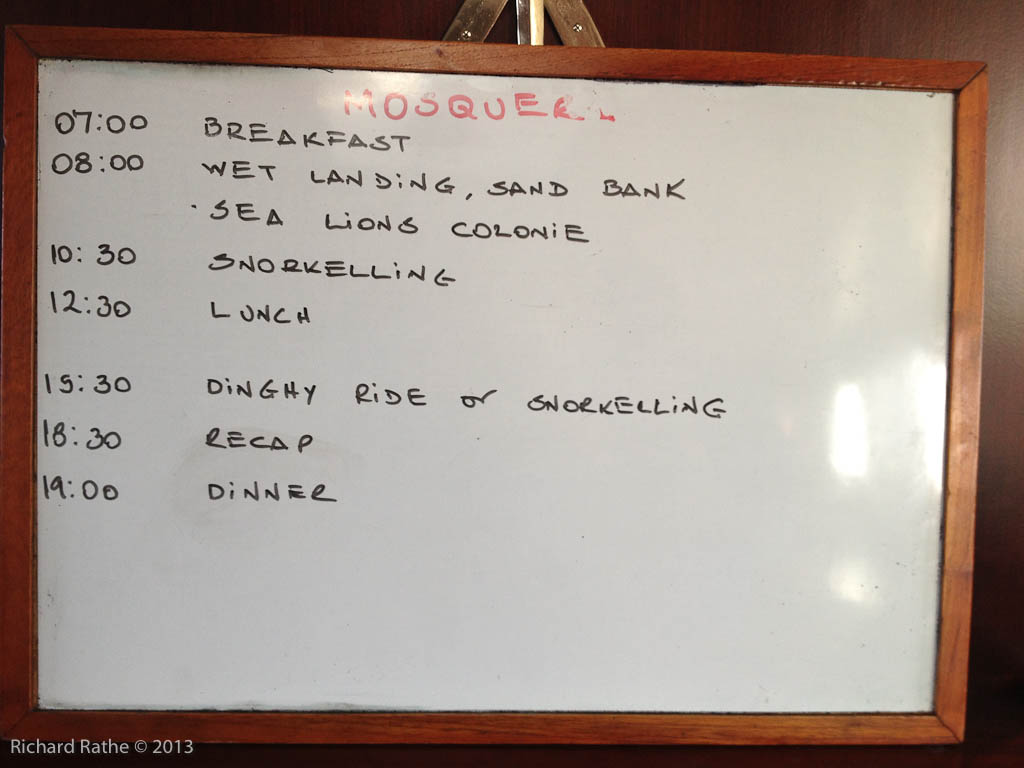 07:00 BREAKFAST
08:00 WET LANDING, SAND BANK
· SEA LIONS COLONIE
10:30 SNORKELLING
12:30 LUNCH
15:30 DINGHY RIDE or SNORKELLING
18:30 RECAP
19:00 DINNER
Richard Rathe © 2013